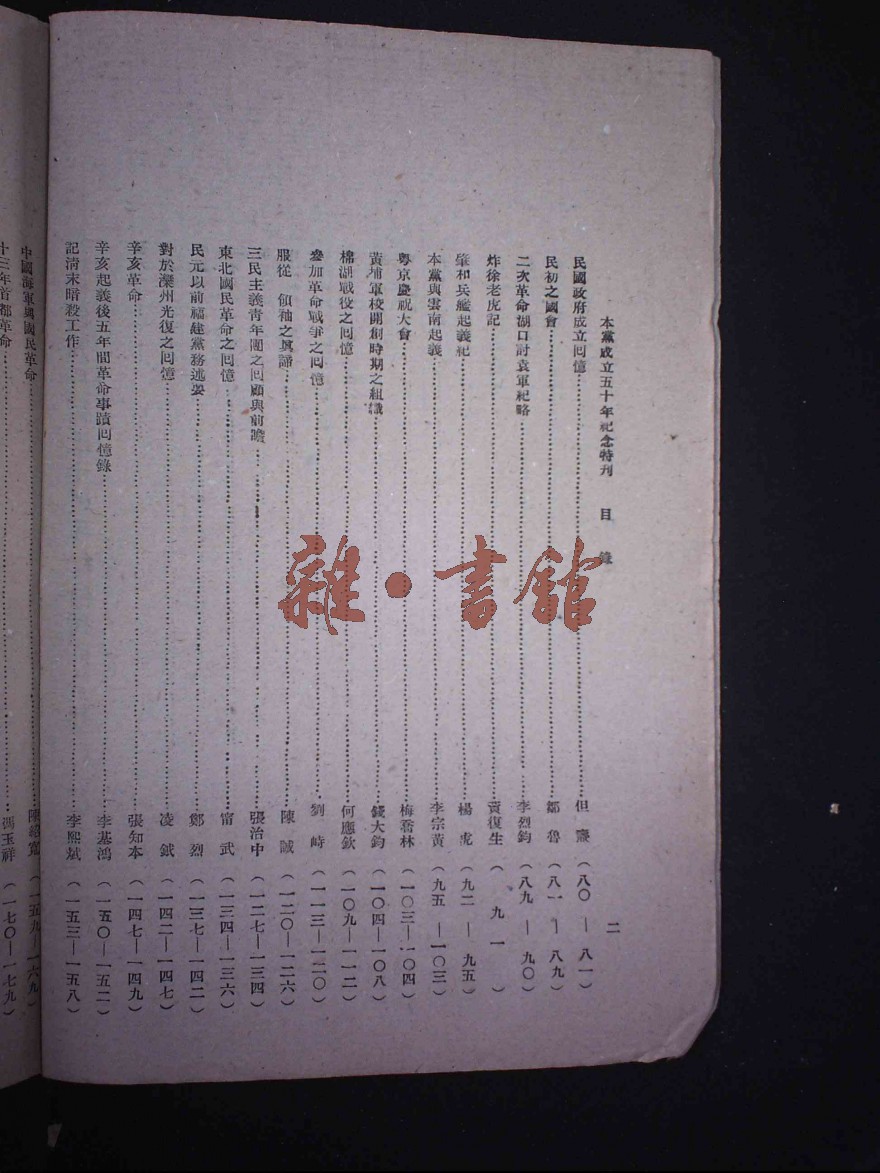 本黨成立五十年祀念特刊 目錄 二
民國政府成立囘憶 但燾 (八〇—八一)
民初之國會 鄒魯 (八一—八九)
二次革命湖口討袁軍祀略 李烈鈞 (八九—九〇)
炸徐老虎記 賓復生 (九一)
肇和兵艦起義祀 楊虎 (九二—九五)
本黨與雲南起義 李宗黃 (九五—一〇三)
粵京慶祝大會 梅喬林 (一〇三—一〇四)
黃埔軍校開創時期之組織 錢大鈞 (一〇四—一〇八)
棉湖戰役之囘憶 何應欽 (一〇九—一一二)
參加革命戰爭之囘憶 劉峙 (一一三—一二〇)
服從 領袖之眞諦 陳誠 (一二〇—一二六)
三民主義青年團之囘顧與前瞻 張治中 (一二七—一三四)
東北國民革命之囘憶 甯武 (一三四—一三六)
民元以前福建黨務述要 鄭烈 (一三七—一四二)
對於灤州光復之囘憶 凌鉞 (一四二—一四七)
辛亥革命 張知本 (一四七—一四九)
辛亥起義後五年間革命事蹟囘憶錄 李基鴻 (一五〇—一五二)
記清末暗殺工作 李熙斌 (一五三—一五八)
中國海軍與國民革命 陳紹寬 (一五九—一六九)
十三年首都革命 馮玉祥 (一七〇—一七九)
雜·書館